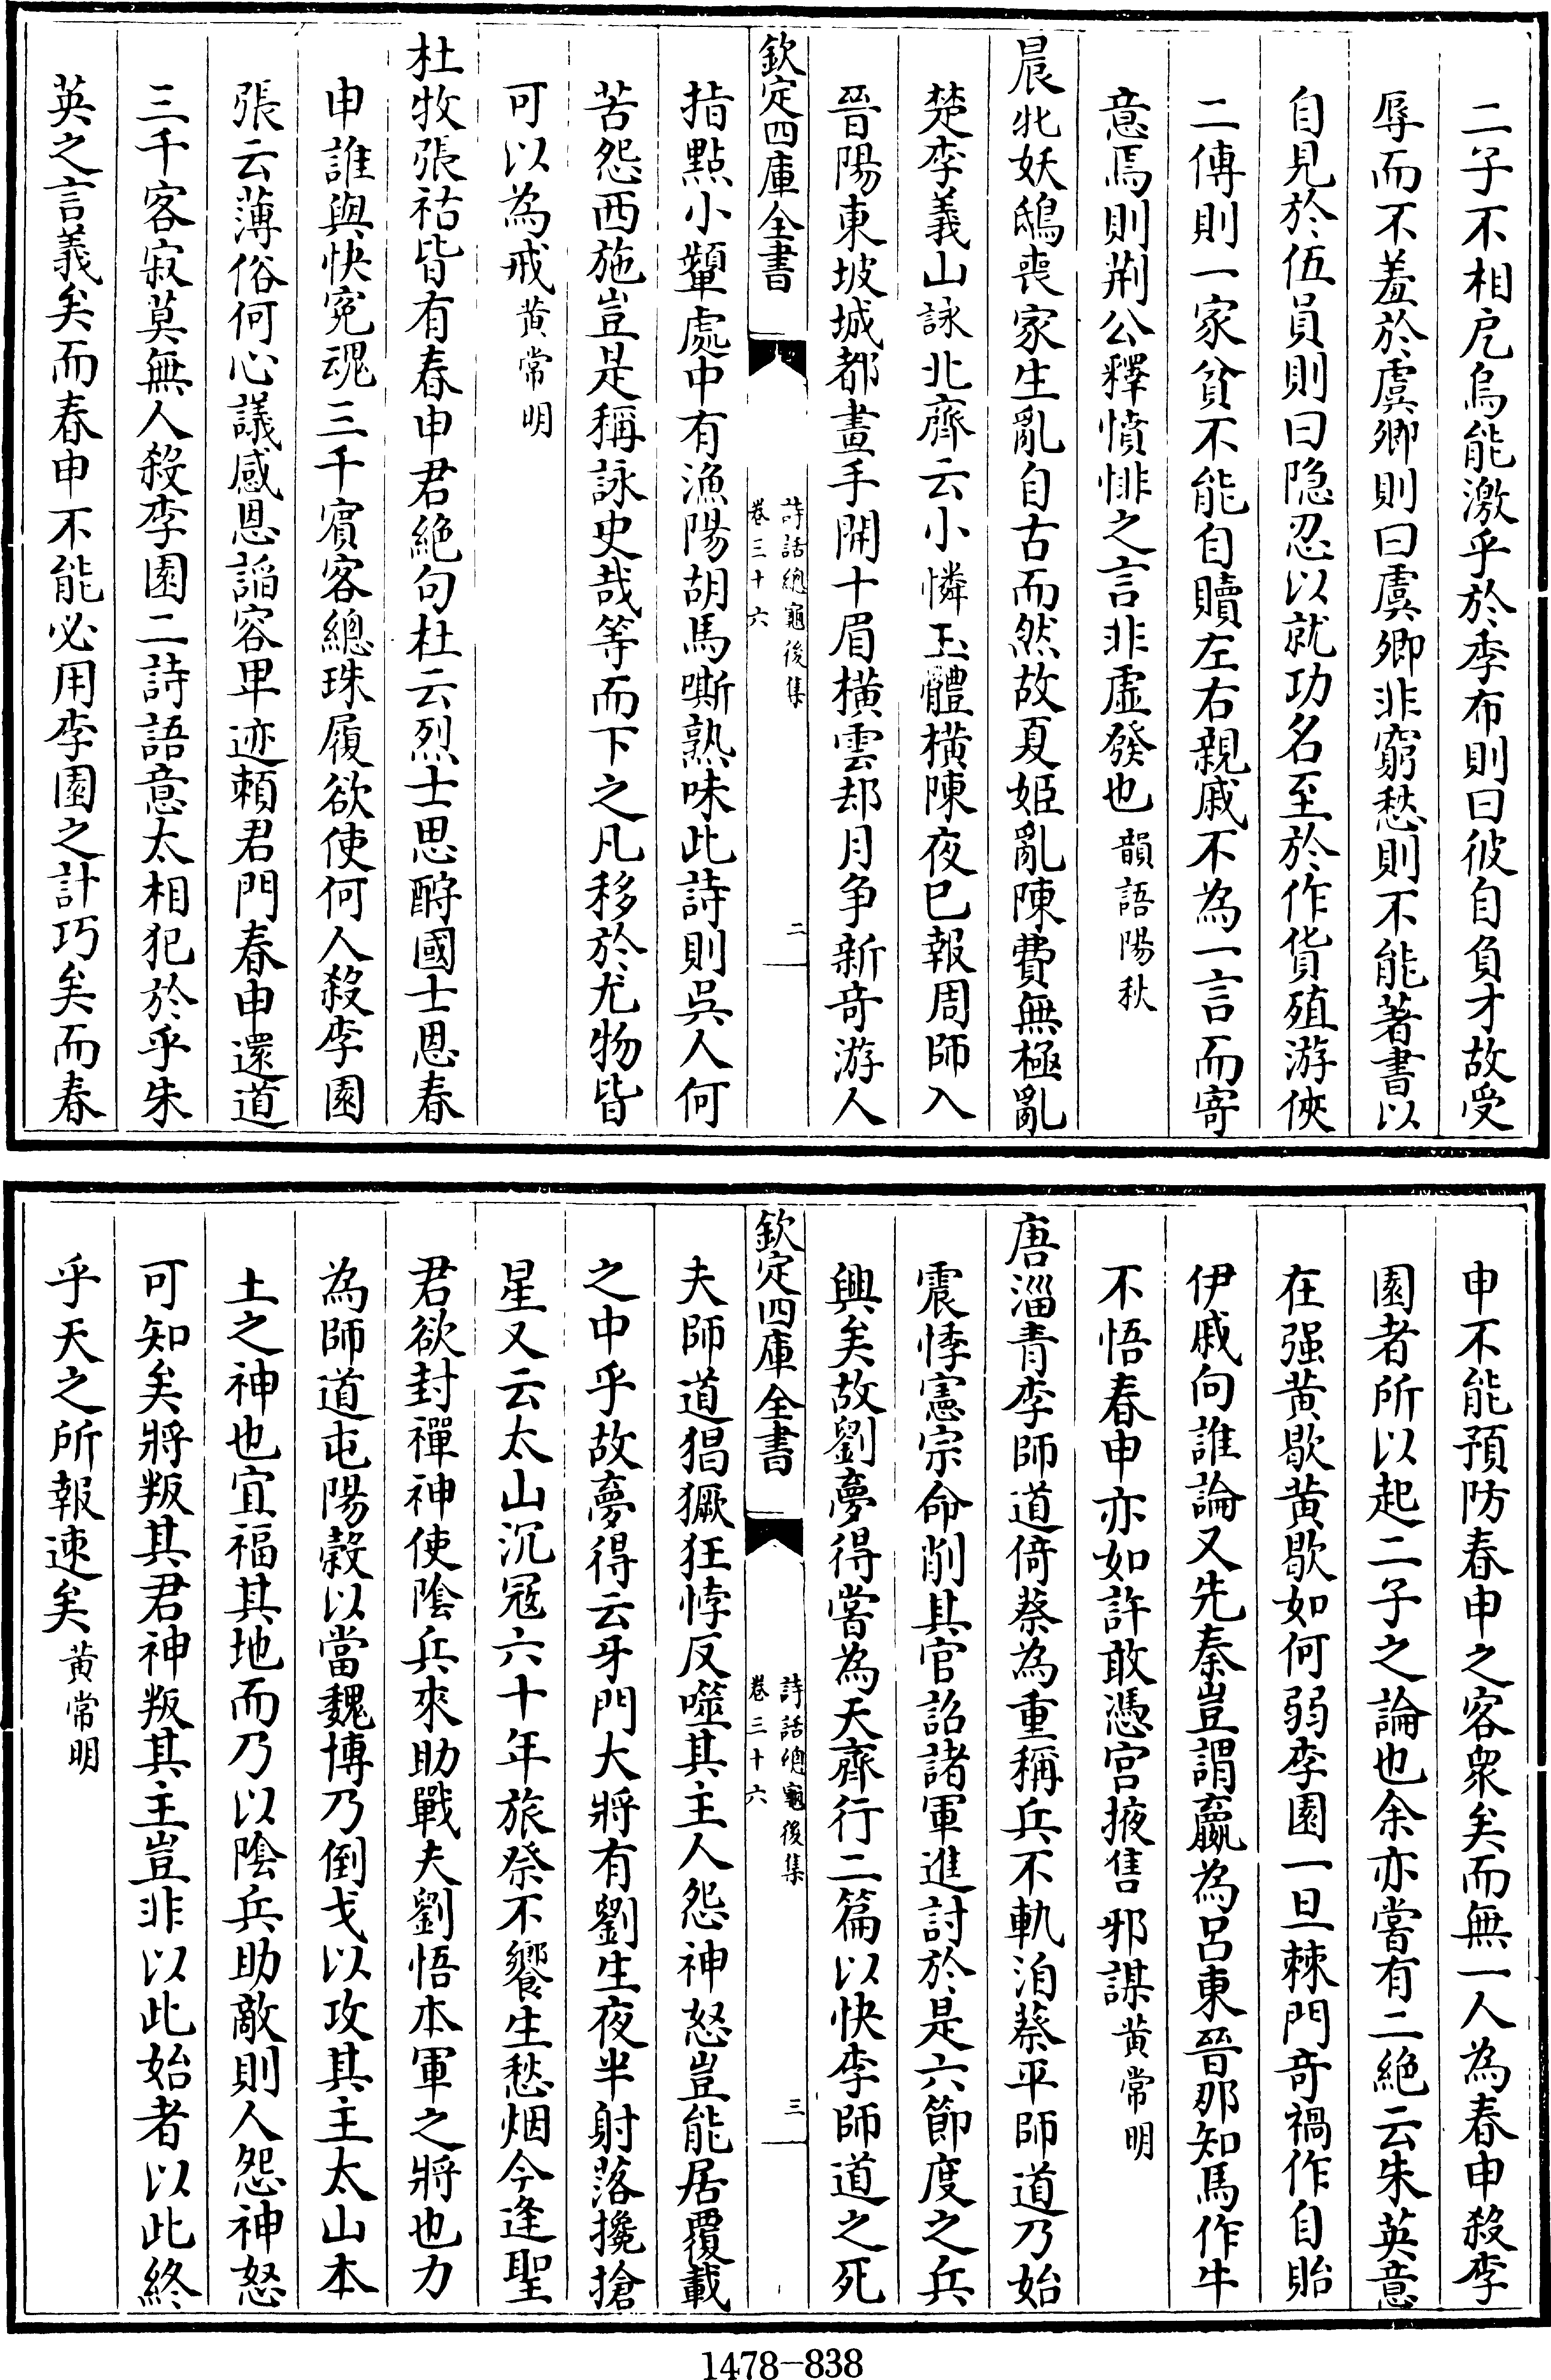 二子不相戹烏能激乎於季布則曰彼自負才故受
辱而不羞於虞卿則曰虞卿非窮愁則不能著書以
自見於伍員則曰隐忍以就功名至於作貨殖游俠
二傳則一家貧不能自贖左右親戚不為一言而寄
意焉則荆公釋憤悱之言非虚發也韻語陽秋
晨牝妖鴟喪家生亂自古而然故夏姬亂陳費無極亂
楚李義山詠北齊云小憐玉體橫陳夜已報周師入
晉陽東坡城都畫手開十眉橫雲却月争新奇游人
欽定四庫全書
詩話總龜後集
卷三十六
二
指點小顰處中有漁陽胡馬嘶熟味此詩則吳人何
苦怨西施豈是稱詠史哉等而下之凡移於尤物皆
可以為戒黄常明
杜牧張祜皆有春申君絶句杜云烈士思酧國士恩春
申誰與快寃魂三千賓客總珠履欲使何人殺李園
張云薄俗何心議感恩謟容卑迹頼君門春申還道
三千客寂莫無人殺李園二詩語意太相犯於乎朱
英之言義矣而春申不能必用李園之計巧矣而春
申不能預防春申之客衆矣而無一人為春申殺李
園者所以起二子之論也余亦嘗有二絶云朱英意
在强黄歇黄歇如何弱李園一旦棘門奇禍作自貽
伊戚向誰論又先秦豈謂嬴為吕東晉那知馬作牛
不悟春申亦如許敢憑宫掖售邪謀黄常明
唐淄青李師道倚蔡為重稱兵不軌洎蔡平師道乃始
震悸憲宗命削其官詔諸軍進討於是六節度之兵
興矣故劉夢得嘗為天齊行二篇以快李師道之死
欽定四庫全書
詩話總龜後集
卷三十六
三
夫師道猖獗狂悖反噬其主人怨神怒豈能居覆載
之中乎故夢得云牙門大將有劉生夜半射落攙搶
星又云太山沉冦六十年旅祭不饗生愁烟今逢聖
君欲封禪神使陰兵來助戰夫劉悟本軍之將也力
為師道屯陽榖以當魏博乃倒戈以攻其主太山本
土之神也宜福其地而乃以陰兵助敵則人怨神怒
可知矣將叛其君神叛其主豈非以此始者以此終
乎天之所報速矣黄常明
1478-838